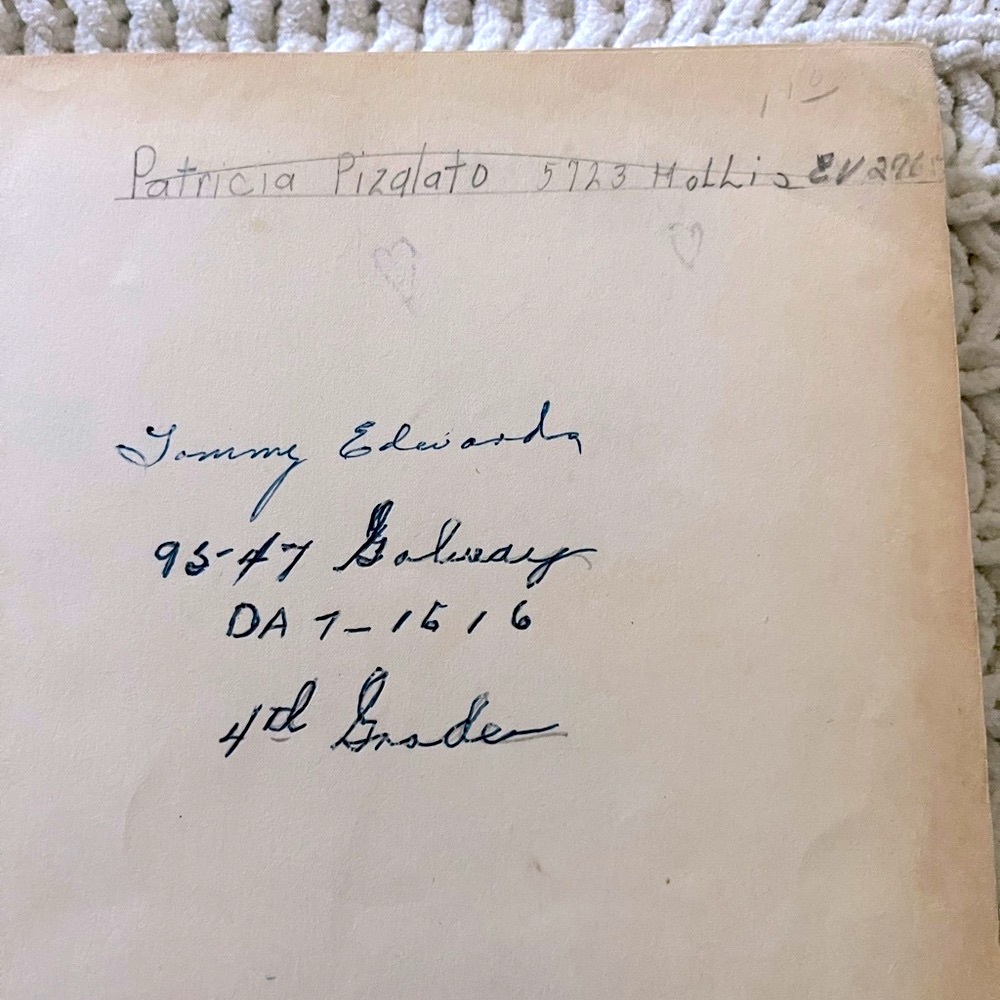 Patricia Pizalato 5723 Hollis
Tommy Edwards
95-47 Galway
DA 7-1616
4th Grade